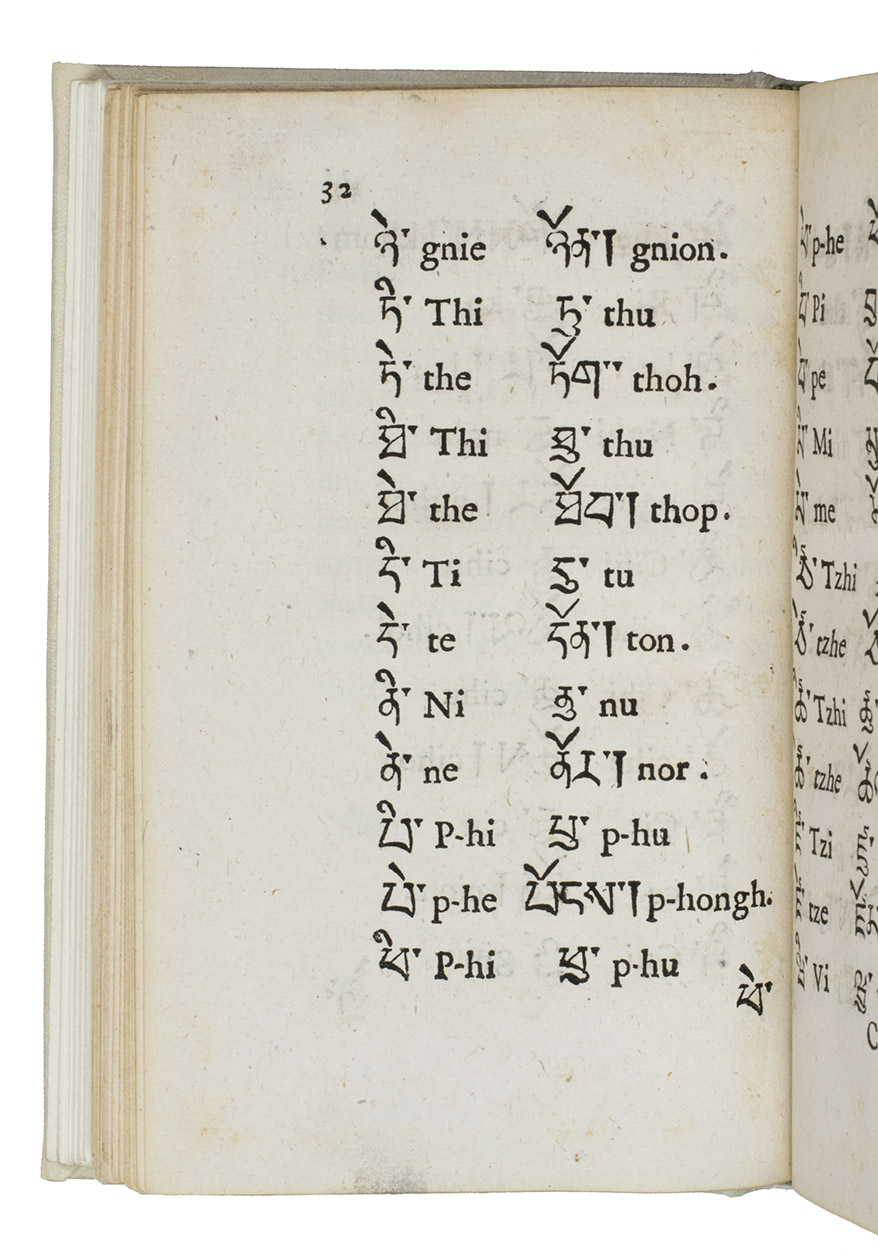 32
ཉེ་ gnie ཉོན་། gnion.
ཏི་ Thi ཏུ་ thu
ཏེ་ the ཏོག་་ thoh.
ཐི་ Thi ཐུ་ thu
ཐེ་ the ཐོབ་། thop.
དི་ Ti དུ་ tu
དེ་ te དོན་། ton.
ནི་ Ni ནུ་ nu
ནེ་ ne ནོར་། nor.
པི་ P-hi པུ་ p-hu
པེ་ p-he པོངས་། p-hongh.
ཕི་ P-hi ཕུ་ p-hu
ཕེ་
p-he
Pi
pe
Mi
me
Tzhi
tzhe
Tzhi
tzhe
Tzi
tze
Vi